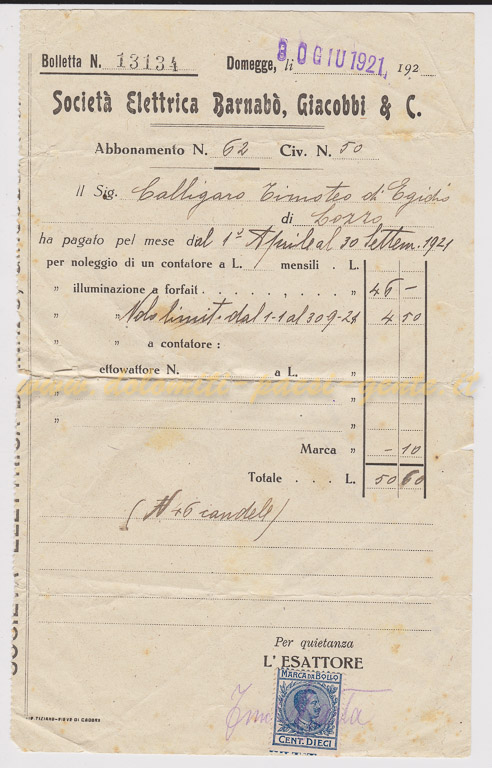 Bolletta N. 13134 Domegge, li 30 GIU 1921, 192
Società Elettrica Barnabò, Giacobbi & C.
Abbonamento N. 62 Civ. N. 50
Il Sig. Calligaro Timoteo di Egidio
di Lozzo
ha pagato pel mese dal 1° Aprile al 30 Settem. 1921
per noleggio di un contatore a L. mensili . L.
" illuminazione a forfait " 46 -
" " Nolo limit. dal 1-1 al 30-9-21 4 50
" a contatore :
ettowattore N. a L. "
"
"
Marca " - 10
Totale L. 50 60
( + 6 candele)
Per quietanza
L'ESATTORE
MARCA DA BOLLO
CENT. DIECI
TIP. TIZIANO-PIEVE DI CADORE